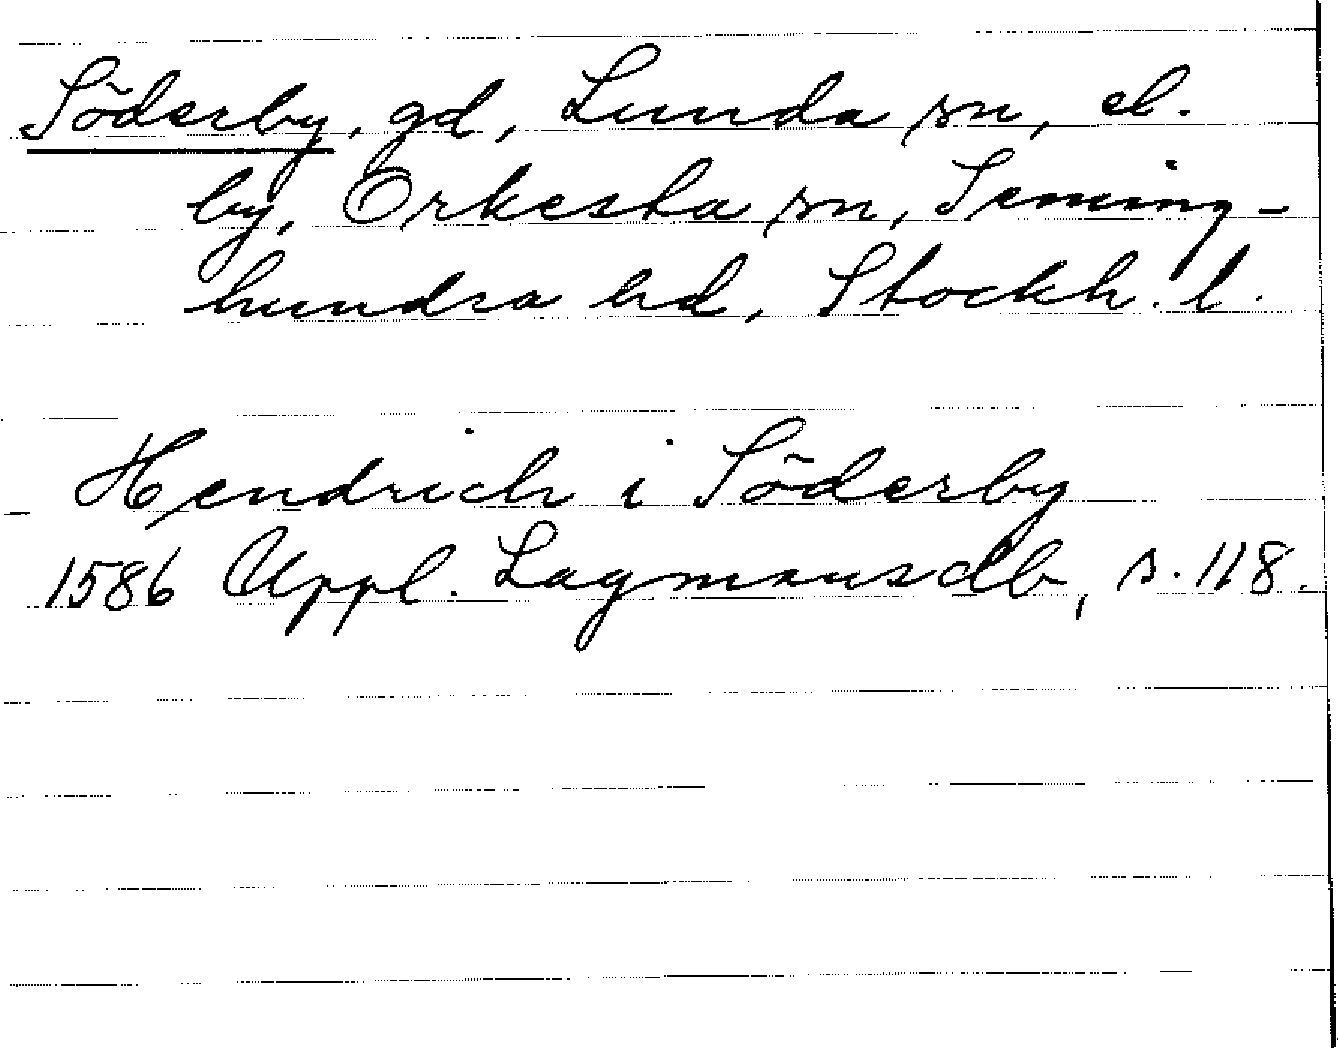 Söderby, gd, Lunda sn, el.
by, Orkesta sn, Seming-
hundra hd, Stockh. l.
Hendrich i Söderby
1586 Uppl. Lagmansdb, s. 118.